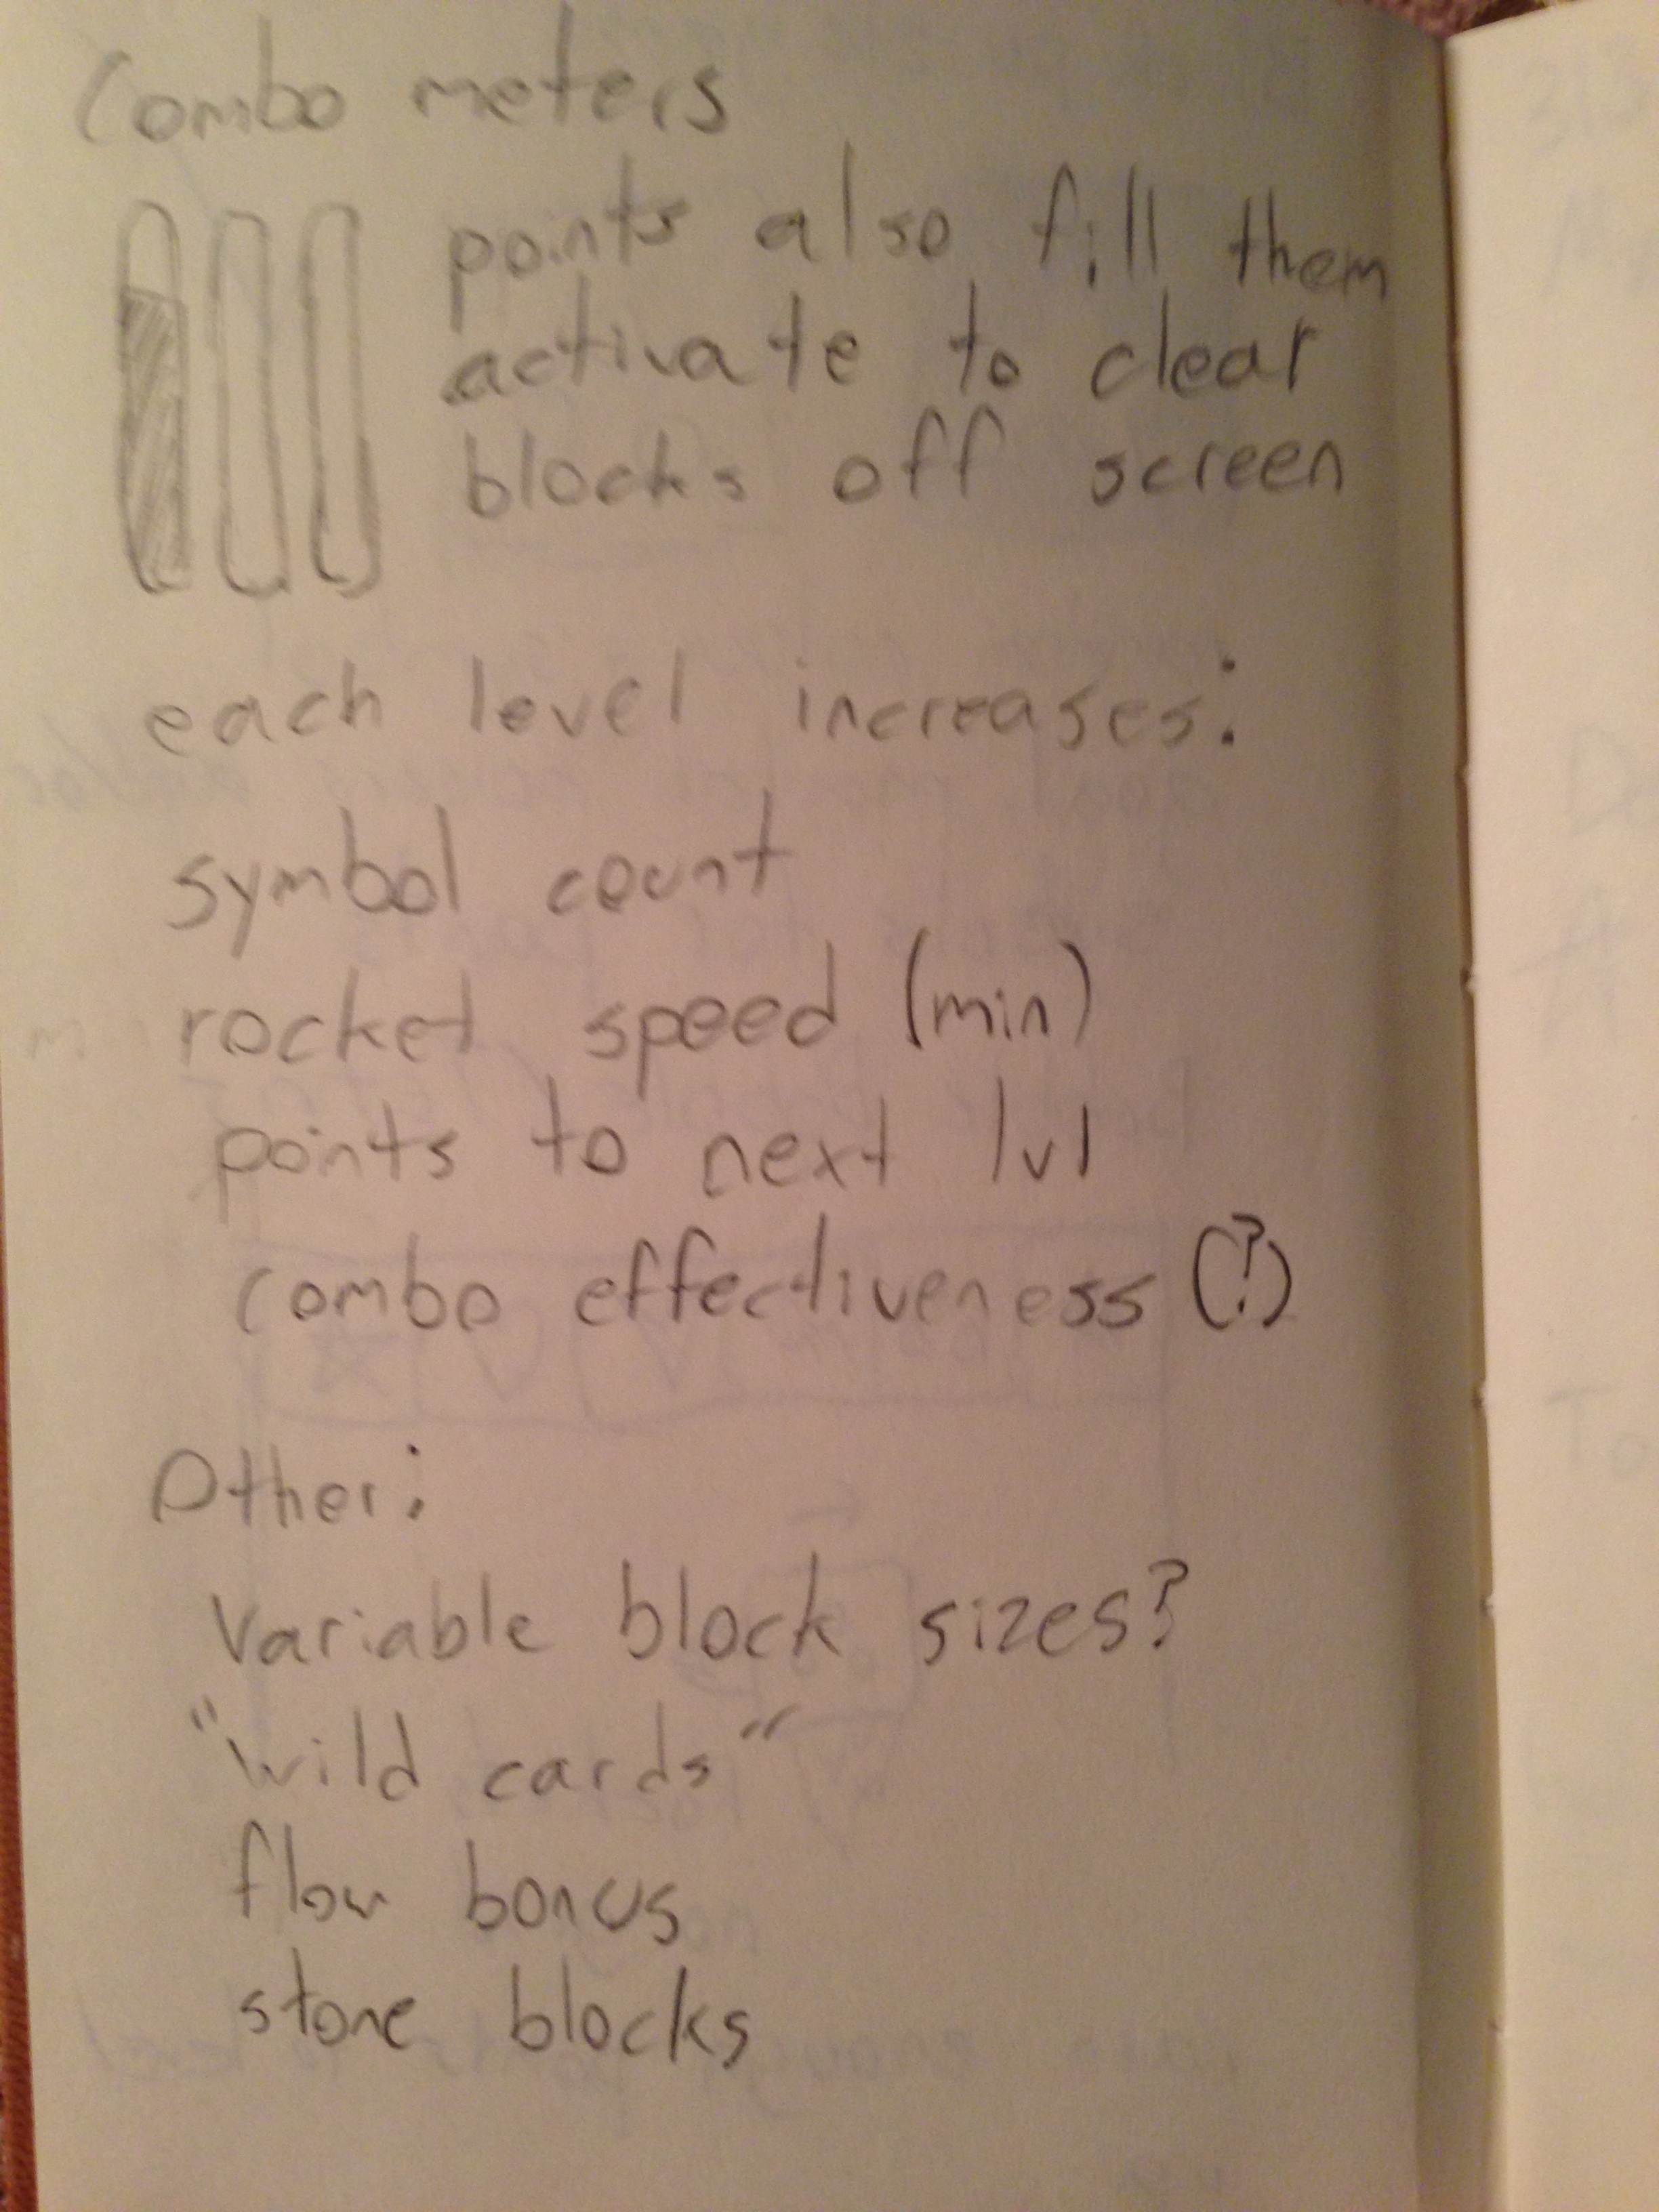 Combo meters
points also fill them
activate to clear
blocks off screen
each level increases:
symbol count
rocket speed (min)
points to next lvl
combo effectiveness (?)
Other:
Variable block sizes?
"wild cards"
flow bonus
stone blocks
To